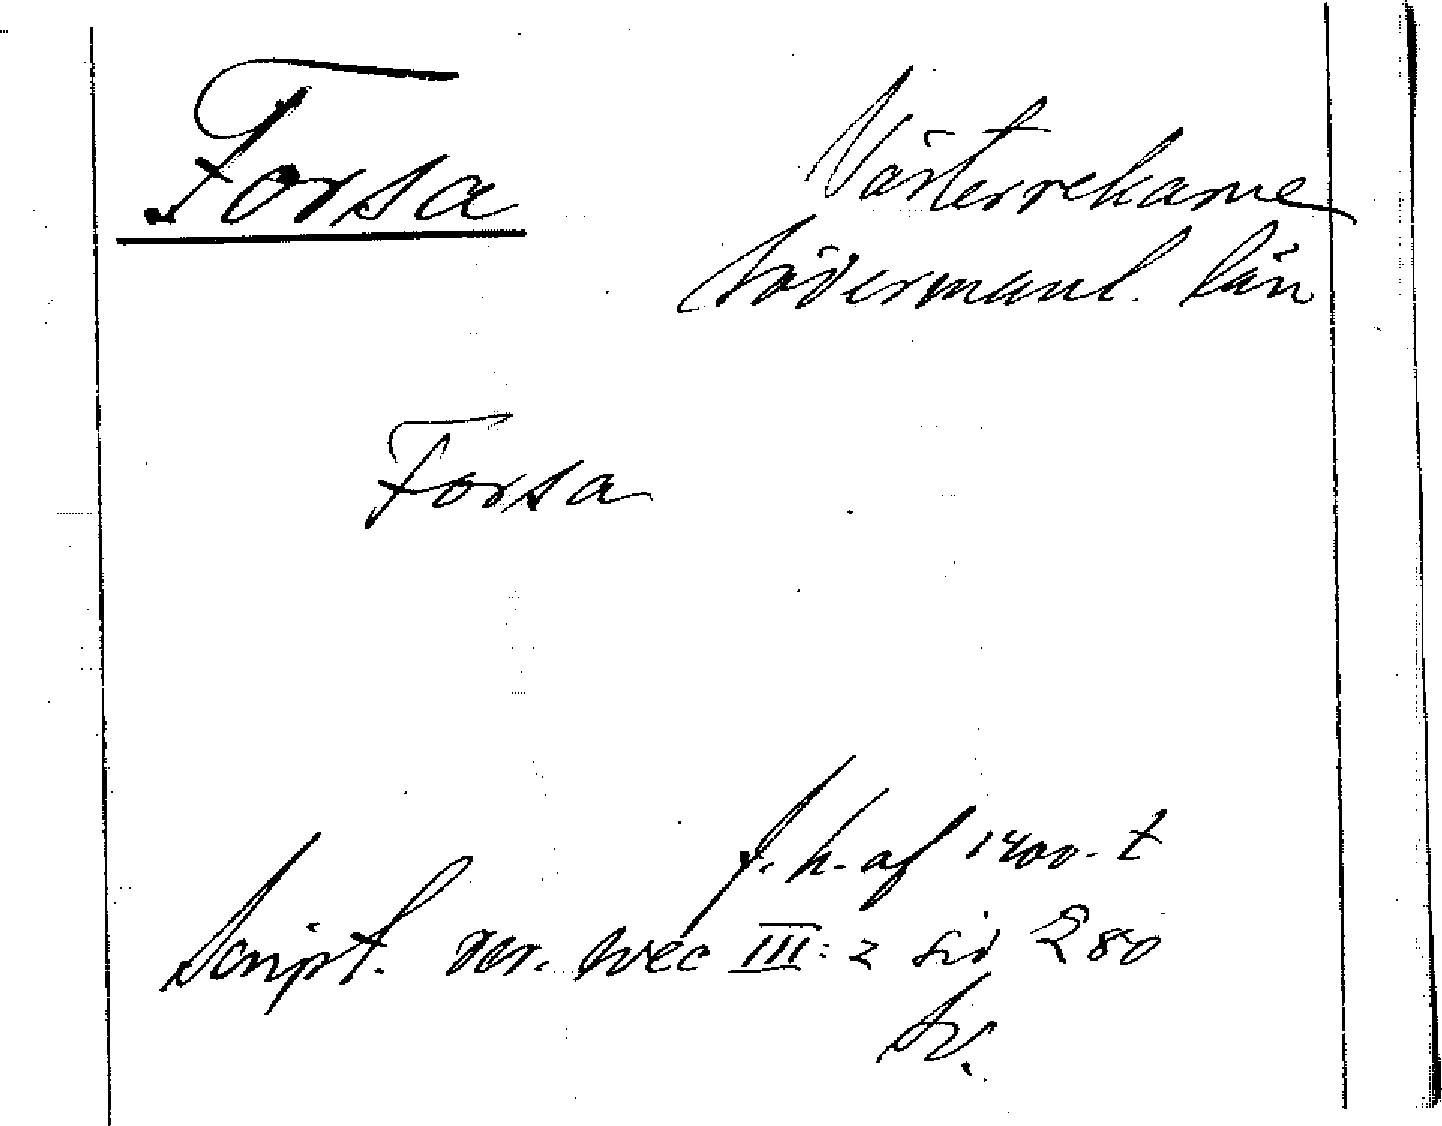 Forsa
Västerrekarne
Södermanl. län
Forsa
f. h. af 1400-t
Script. rer. svec III: 2 sid 280
Sv.